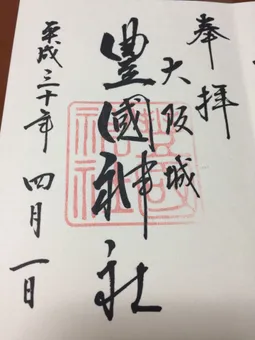 奉拝
大阪城
豊國神社
平成三十年 四月一日